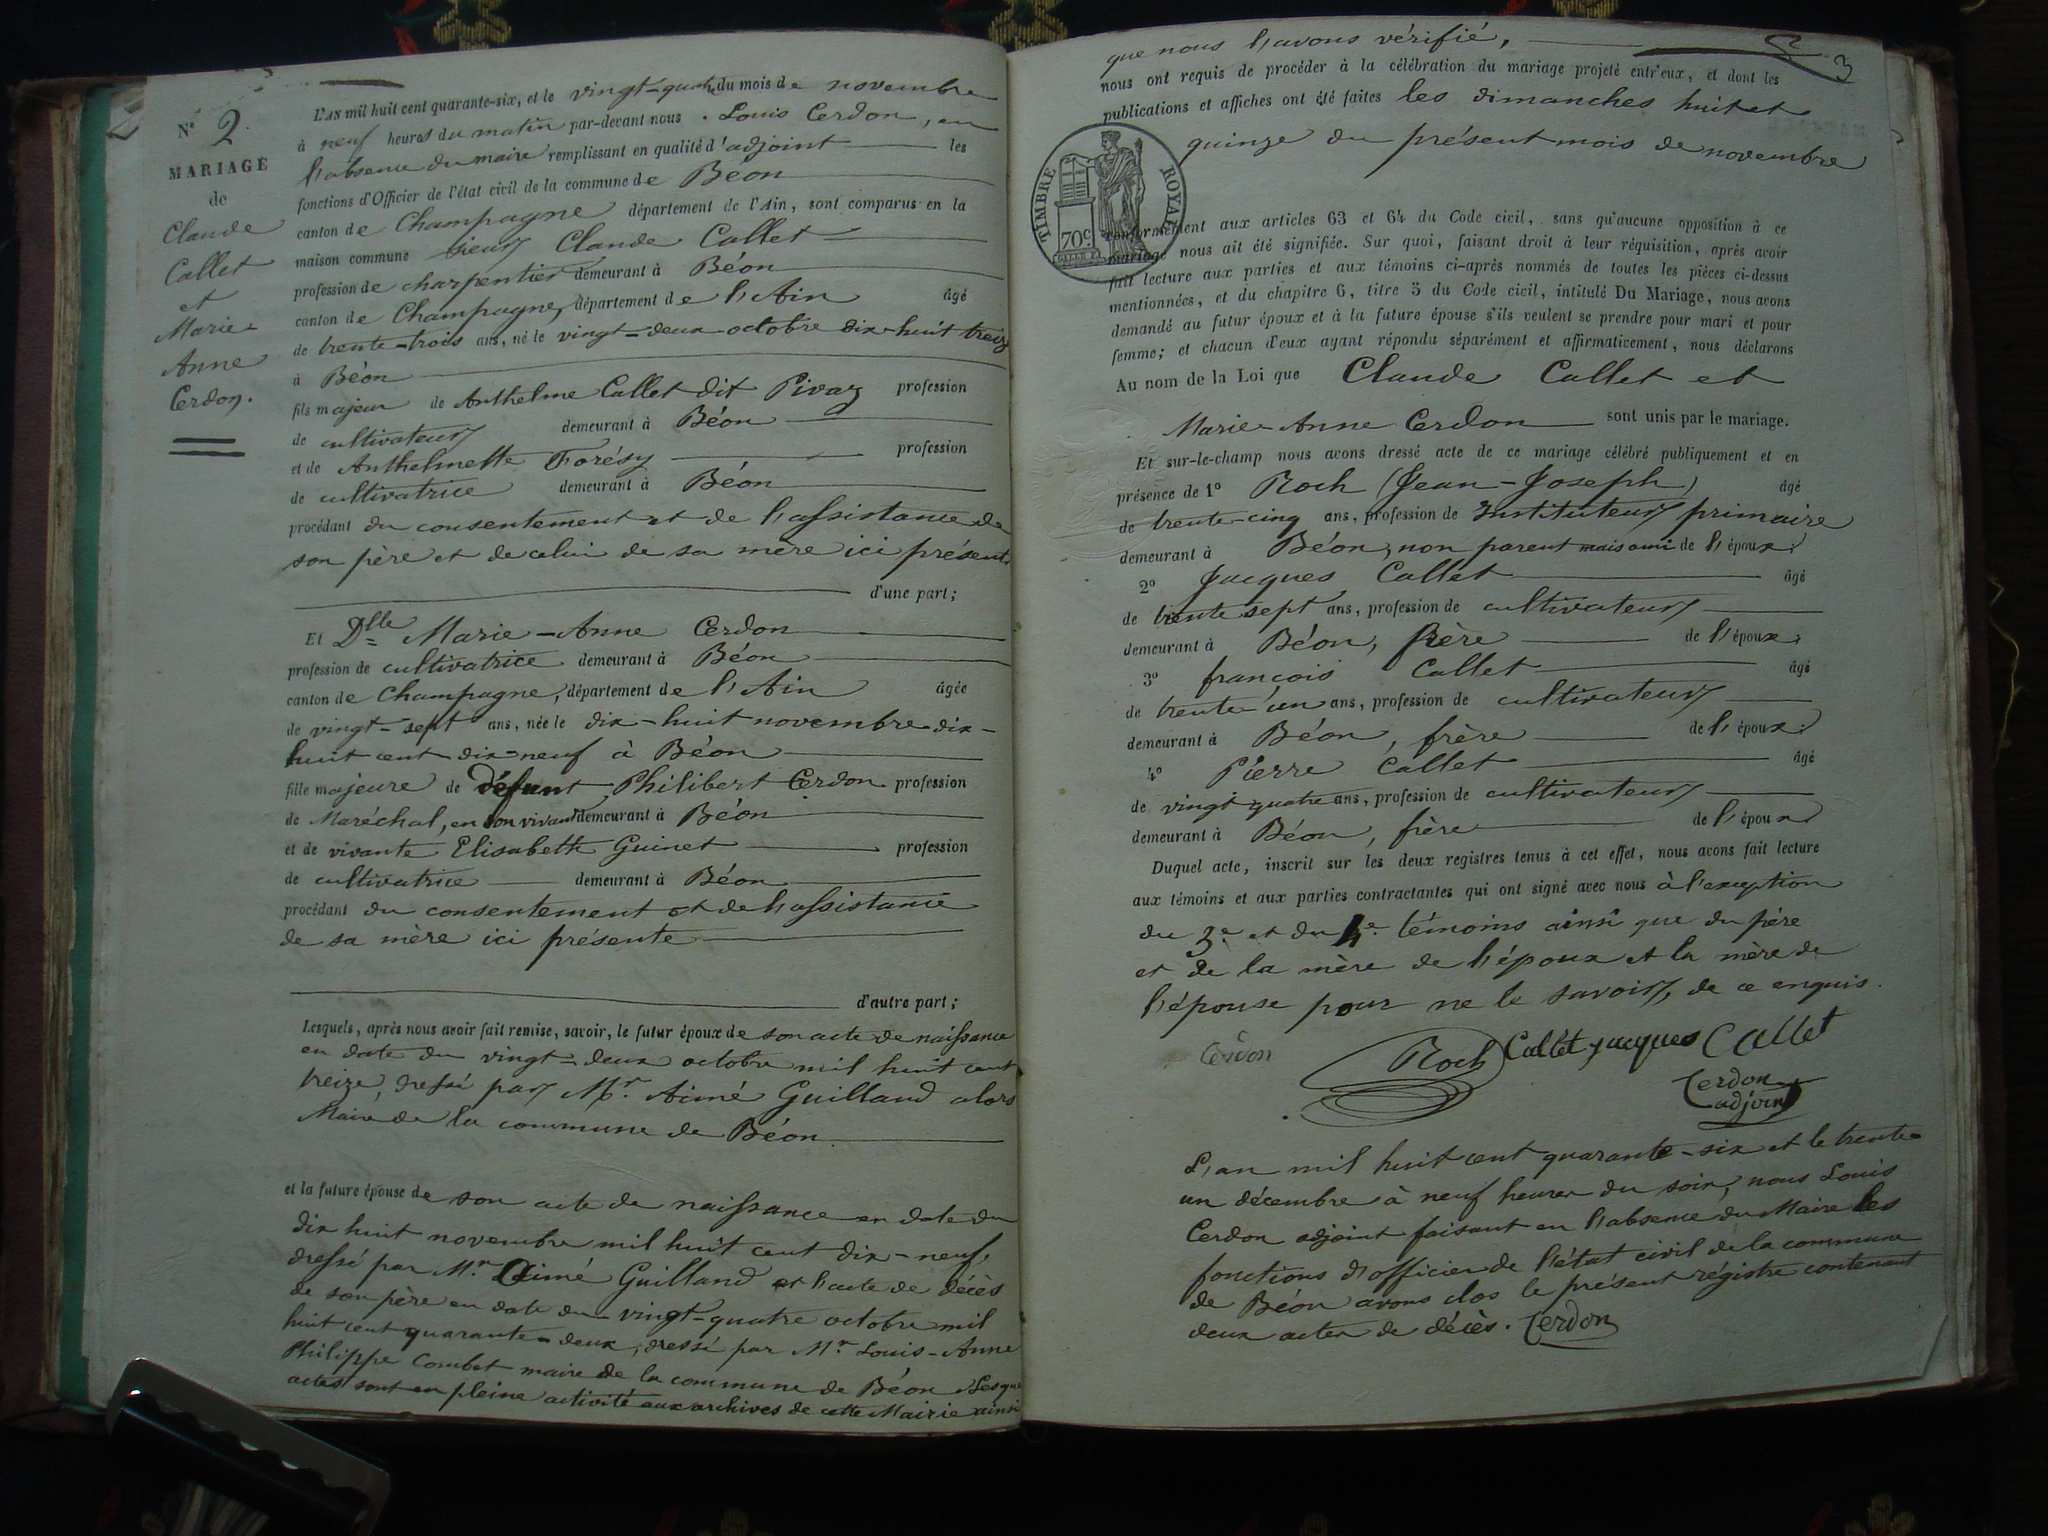 N° 2.
MARIAGE
de
Claude
Callet
et
Marie-
Anne
Cerdon.
L'AN mil huit cent quarante-six, et le vingt-quatre du mois de novembre
à neuf heures du matin par-devant nous . Louis Cerdon, en
l'absence du maire remplissant en qualité d'adjoint les
fonctions d'Officier de l'état civil de la commune de Béon
canton de Champagne département de l'Ain, sont comparus en la
maison commune sieur Claude Callet
profession de charpentier demeurant à Béon
canton de Champagne, département de l'Ain âgé
de trente-trois ans, né le vingt-deux octobre dix-huit treize
à Béon
fils majeur de Anthelme Callet dit Pivaz profession
de cultivateur demeurant à Béon
et de Anthelmette Forésy profession
de cultivatrice demeurant à Béon
procédant du consentement et de l'assistance de
son père et de celui de sa mère ici présents
d'une part;
Et Dlle Marie-Anne Cerdon
profession de cultivatrice demeurant à Béon
canton de Champagne, département de l'Ain âgée
de vingt-sept ans, née le dix-huit novembre dix-
huit cent dix-neuf à Béon
fille majeure de défunt Philibert Cerdon profession
de Maréchal, en son vivant demeurant à Béon
et de vivante Elisabeth Guinet profession
de cultivatrice demeurant à Béon
procédant du consentement et de l'assistance
de sa mère ici présente
d'autre part;
Lesquels, après nous avoir fait remise, savoir, le futur époux de son acte de naissance
en date du vingt-deux octobre mil huit cent
treize, dressé par Mr. Aimé Guilland alors
Maire de la commune de Béon.
et la future épouse de son acte de naissance en date du
dix huit novembre mil huit cent dix-neuf,
dressé par Mr. Aimé Guilland et l'acte de décès
de son père en date du vingt-quatre octobre mil
huit cent quarante-deux, dressé par Mr Louis-Anne
Philippe Combet maire de la commune de Béon Lesque
actes sont en pleine activité aux archives de cette Mairie ainsi
3
que nous l'avons vérifié,
nous ont requis de procéder à la célébration du mariage projeté entr'eux, et dont les
publications et affiches ont été faites les dimanches huit et
quinze du présent mois de novembre
TIMBRE ROYAL
70c.
conformément aux articles 63 et 64 du Code civil, sans qu'aucune opposition à ce
mariage nous ait été signifiée. Sur quoi, faisant droit à leur réquisition, après avoir
fait lecture aux parties et aux témoins ci-après nommés de toutes les pièces ci-dessus
mentionnées, et du chapitre 6, titre 5 du Code civil, intitulé Du Mariage, nous avons
demandé au futur époux et à la future épouse s'ils veulent se prendre pour mari et pour
femme; et chacun d'eux ayant répondu séparément et affirmativement, nous déclarons
Au nom de la Loi que Claude Callet et
Marie-Anne Cerdon sont unis par le mariage.
Et sur-le-champ nous avons dressé acte de ce mariage célébré publiquement et en
présence de 1° Roch (Jean-Joseph) âgé
de trente-cinq ans, profession de Instituteur primaire
demeurant à Béon, non parent mais ami de l'époux;
2° Jacques Callet âgé
de trente sept ans, profession de cultivateur
demeurant à Béon, frère de l'époux;
3° françois Callet âgé
de trente-un ans, profession de cultivateur
demeurant à Béon, frère de l'époux;
4° Pierre Callet âgé
de vingt quatre ans, profession de cultivateur
demeurant à Béon, frère de l'époux
Duquel acte, inscrit sur les deux registres tenus à cet effet, nous avons fait lecture
aux témoins et aux parties contractantes qui ont signé avec nous à l'exception
du 3e. et du 4e. témoins ainsi que du père
et de la mère de l'époux et la mère de
l'épouse pour ne le savoir, de ce enquis.
Cerdon Roch Callet jacques Callet
Cerdon
adjoint
L'an mil huit cent quarante-six et le trente-
un décembre à neuf heures du soir, nous Louis
Cerdon adjoint faisant en l'absence du Maire les
fonctions d'officier de l'état civil de la commune
de Béon avons clos le présent régistre contenant
deux actes de décès. Cerdon